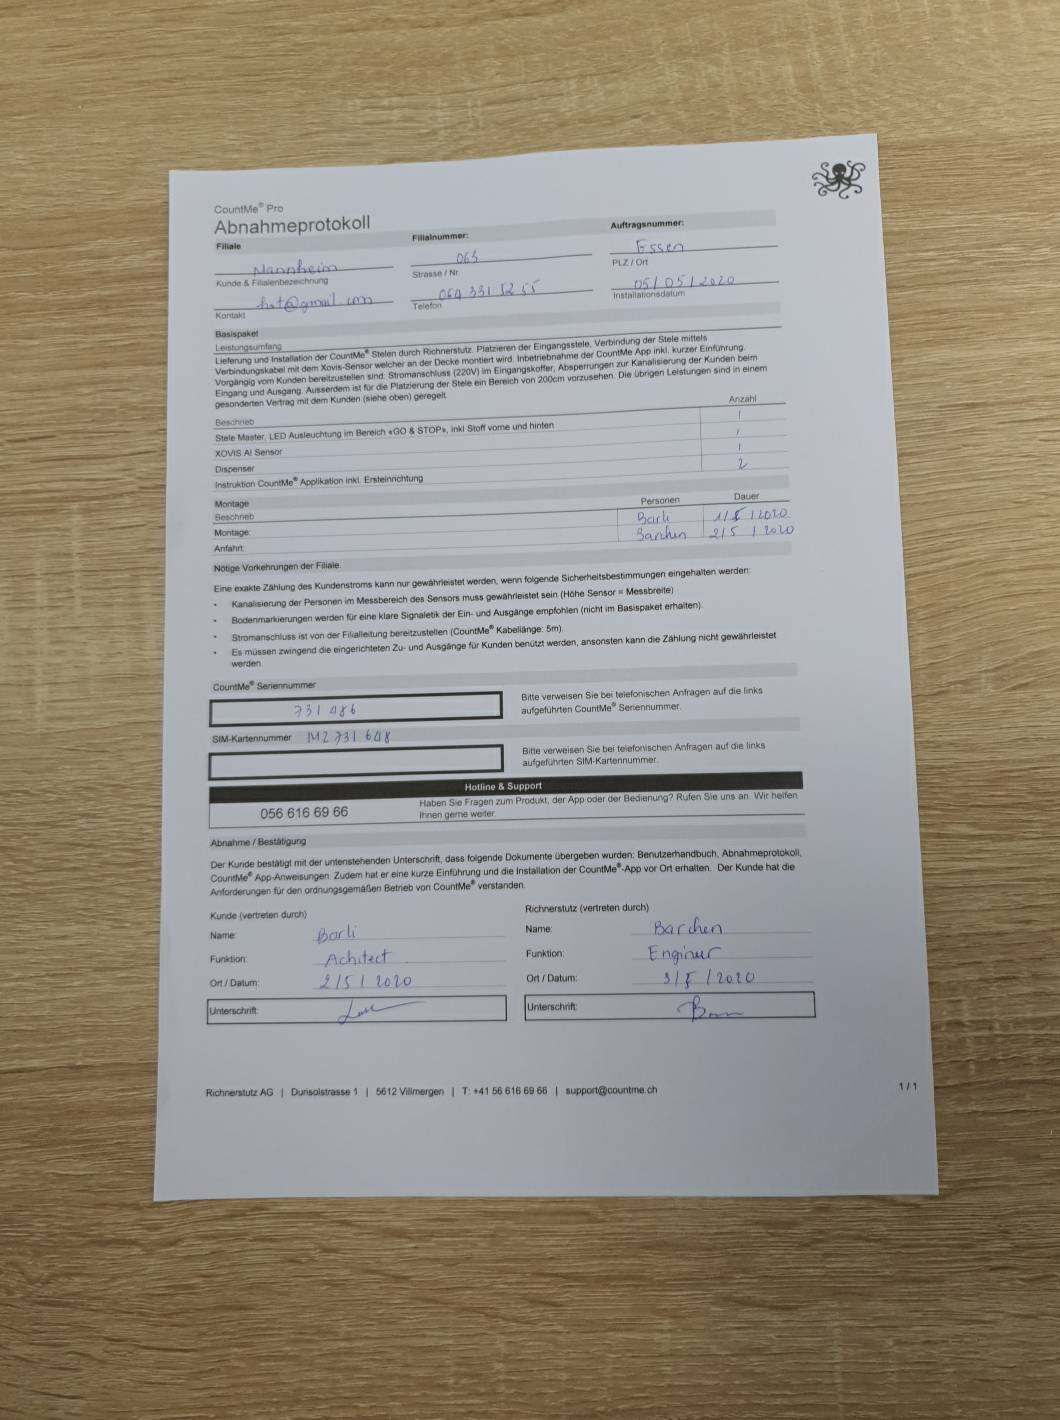 CountMe® Pro
Abnahmeprotokoll
Filiale Filialnummer: Auftragsnummer:
Mannheim 065 Essen
Kunde & Filialenbezeichnung Strasse / Nr. PLZ / Ort
hst@gmail com 069 331 52 55 05/05/2020
Kontakt Telefon Installationsdatum
Basispaket
Leistungsumfang
Lieferung und Installation der CountMe® Stelen durch Richnerstutz. Platzieren der Eingangsstele, Verbindung der Stele mittels
Verbindungskabel mit dem Xovis-Sensor welcher an der Decke montiert wird. Inbetriebnahme der CountMe App inkl. kurzer Einführung.
Vorgängig vom Kunden bereitzustellen sind: Stromanschluss (220V) im Eingangskoffer, Absperrungen zur Kanalisierung der Kunden beim
Eingang und Ausgang. Ausserdem ist für die Platzierung der Stele ein Bereich von 200cm vorzusehen. Die übrigen Leistungen sind in einem
gesonderten Vertrag mit dem Kunden (siehe oben) geregelt.
Beschrieb Anzahl
Stele Master, LED Ausleuchtung im Bereich «GO & STOP», inkl Stoff vorne und hinten 1
XOVIS AI Sensor 1
Dispenser 1
Instruktion CountMe® Applikation inkl. Ersteinrichtung 2
Montage
Beschrieb Personen Dauer
Montage: Barli 1/5/2020
Anfahrt: Barchen 2/5/2020
Nötige Vorkehrungen der Filiale.
Eine exakte Zählung des Kundenstroms kann nur gewährleistet werden, wenn folgende Sicherheitsbestimmungen eingehalten werden:
• Kanalisierung der Personen im Messbereich des Sensors muss gewährleistet sein (Höhe Sensor = Messbreite)
• Bodenmarkierungen werden für eine klare Signaletik der Ein- und Ausgänge empfohlen (nicht im Basispaket erhalten).
• Stromanschluss ist von der Filialleitung bereitzustellen (CountMe® Kabellänge: 5m).
• Es müssen zwingend die eingerichteten Zu- und Ausgänge für Kunden benützt werden, ansonsten kann die Zählung nicht gewährleistet
werden.
CountMe® Seriennummer
731 486
Bitte verweisen Sie bei telefonischen Anfragen auf die links
aufgeführten CountMe® Seriennummer.
SIM-Kartennummer M2 731 648
Bitte verweisen Sie bei telefonischen Anfragen auf die links
aufgeführten SIM-Kartennummer.
Hotline & Support
056 616 69 66
Haben Sie Fragen zum Produkt, der App oder der Bedienung? Rufen Sie uns an. Wir helfen
Ihnen gerne weiter.
Abnahme / Bestätigung
Der Kunde bestätigt mit der untenstehenden Unterschrift, dass folgende Dokumente übergeben wurden: Benutzerhandbuch, Abnahmeprotokoll,
CountMe® App-Anweisungen. Zudem hat er eine kurze Einführung und die Installation der CountMe®-App vor Ort erhalten. Der Kunde hat die
Anforderungen für den ordnungsgemäßen Betrieb von CountMe® verstanden.
Kunde (vertreten durch) Richnerstutz (vertreten durch)
Name: Barli Name: Barchen
Funktion: Achitect Funktion: Enginer
Ort / Datum: 2/5/2020 Ort / Datum: 3/5/2020
Unterschrift: Unterschrift:
Richnerstutz AG | Durisolstrasse 1 | 5612 Villmergen | T: +41 56 616 69 66 | support@countme.ch 1 / 1